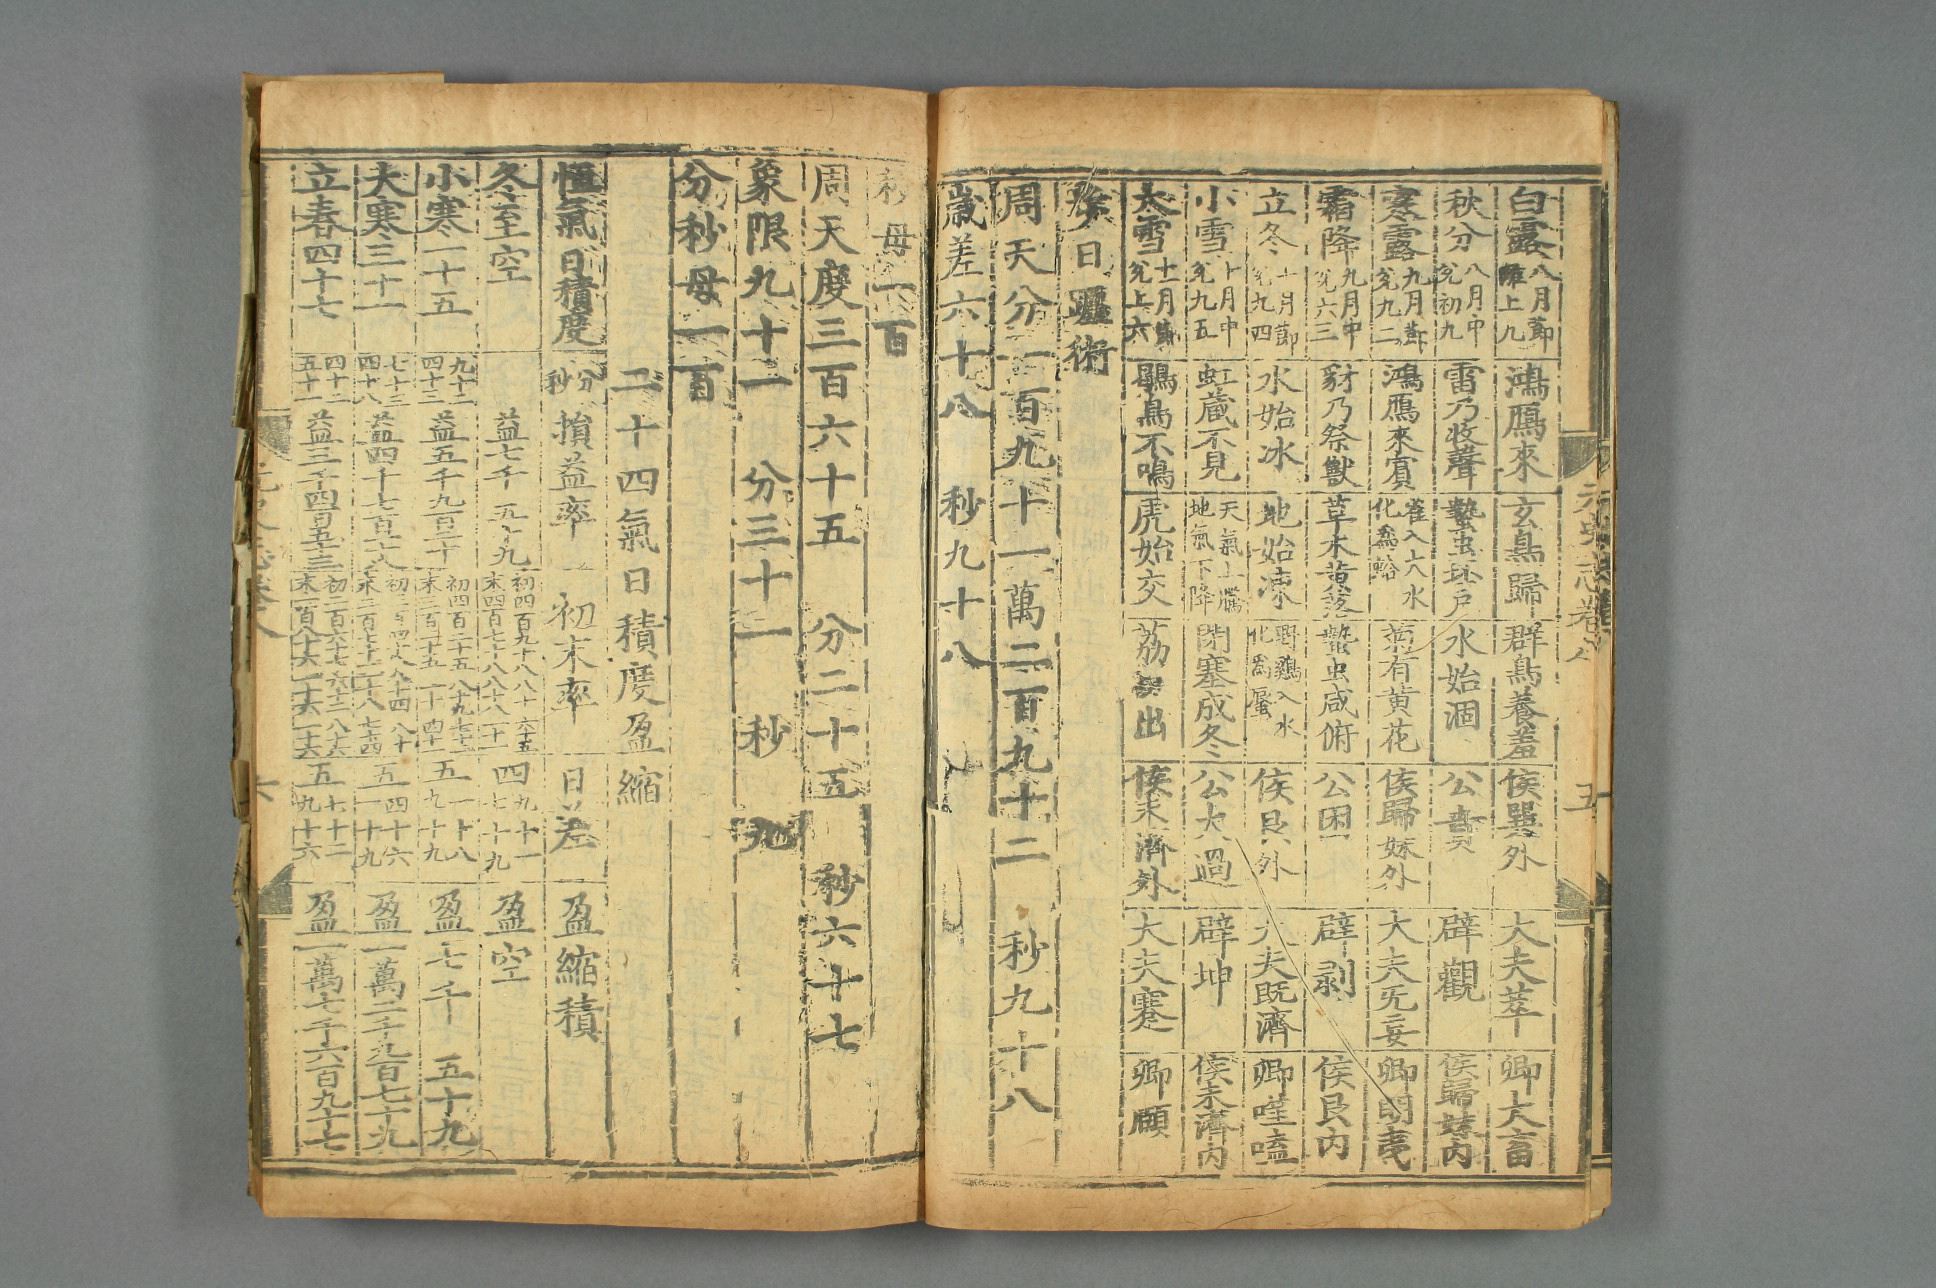 白露八月節離上九 鴻鴈來 玄鳥歸 群鳥養羞 侯巽外 大夫萃 卿大畜
秋分八月中兊初九 雷乃收聲 蟄虫坏户 水始涸 公賁 辟觀 侯歸妹內
寒露九月節兊九二 鴻鴈來賓 雀入大水化為蛤 菊有黄花 侯歸妹外 大夫旡妄 卿明夷
霜降九月中兊六三 豺乃祭獸 草木黄落 蟄虫咸俯 公困 辟剥 侯艮内
立冬十月節兊九四 水始冰 地始凍 野鷄入水化為蜃 侯艮外 大夫既濟 卿噬嗑
小雪十月中兊九五 虹藏不見 天氣上騰地氣下降 閉塞成冬 公大過 辟坤 侯未濟内
大雪十一月節兊上六 鶡鳥不鳴 虎始交 荔挺出 侯未濟外 大夫蹇 卿頤
步日躔術
周天分一百九十一萬二百九十二 秒九十八
歲差六十八 秒九十八
秒母一百
周天度三百六十五 分二十五 秒六十七
象限九十一 分三十一 秒九
分秒母一百
二十四氣日積度盈縮
恒氣 日積度 分秒 損益率 初末率 日差 盈縮積
冬至空 益七千五十九 初四百九十八八十六十五 末四百七十八八十八二十一 四九十一七十九 盈空
小寒一十五 九十二四十三 益五千九百二十 初四百二十五 末三百五十五 五一十八九十九 盈七千五十九
大寒三十一 七十三四十八 益四千七百一十八 五四十六一十九 盈一萬二千九百七十九
立春四十七 四十二五十一 益三千四百五十三 初二百六十七 末一百八十六 五七十二九十六 盈一萬七千六百九十七
元史志卷八 五